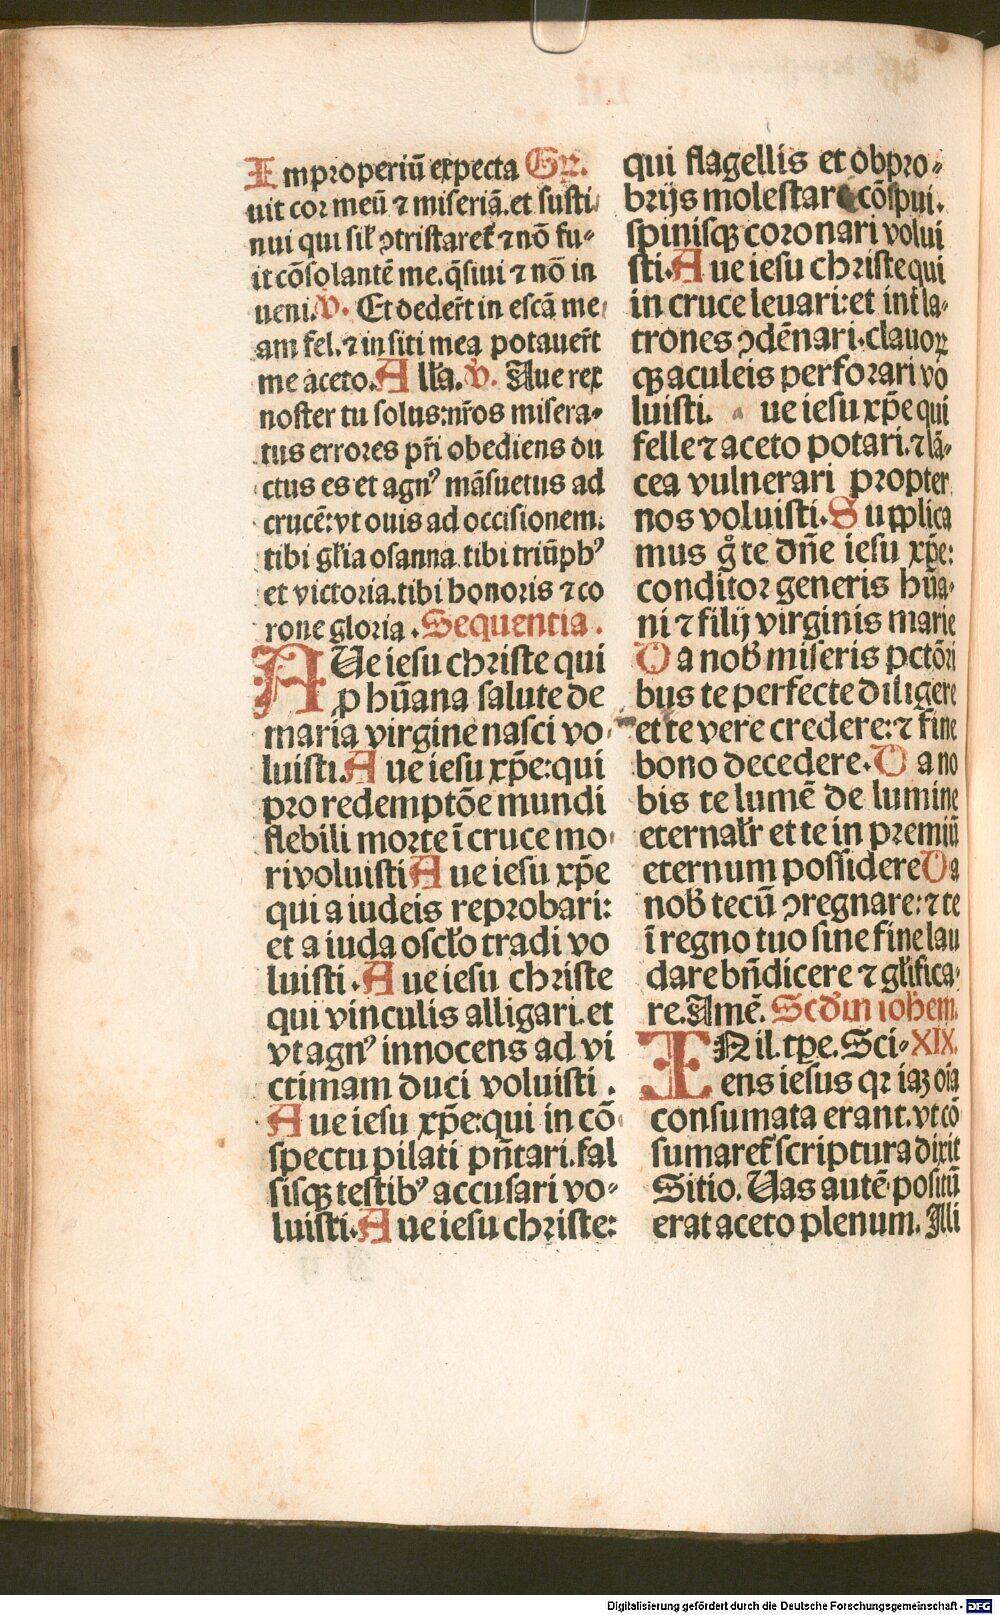 Improperiū expecta Gr.
uit cor meū ⁊ miseriā.et susti
nui qui sil̛ ꝯtristaret̛ ⁊ nō fu-
it cōsolantē me.q̄siui ⁊ nō in
ueni. V̛. Et deder̄t in escā me
am fel.⁊ in siti mea potauer̄t
me aceto. Alła. V̛. Aue rex
noster tu solus:nr̄os misera-
tus errores pr̄i obediens du
ctus es et agnꝰ māsuetus ad
crucē:vt ouis ad occisionem.
tibi głia osanna.tibi triūphꝰ
et victoria.tibi honoris ⁊ co
rone gloria. Sequentia.
AUe iesu christe qui
ꝓ hūana salute de
maria virgine nasci vo
luisti. Aue iesu xp̄e:qui
pro redemptōe mundi
flebili morte ī cruce mo
ri voluisti Aue iesu xp̄e
qui a iudeis reprobari:
et a iuda oscło tradi vo
luisti. Aue iesu christe
qui vinculis alligari.et
vt agnꝰ innocens ad vi
ctimam duci voluisti.
Aue iesu xp̄e:qui in cō
spectu pilati pn̄tari.fal
sisqꝫ testibꝰ accusari vo-
luisti. Aue iesu christe:
qui flagellis et obpro-
brijs molestare cōspui.
spinisqꝫ coronari volui
sti. Aue iesu christe qui
in cruce leuari:et int̛ la-
trones ꝯdēnari.clauoꝝ
qꝫ aculeis perforari vo
luisti. a ue iesu xp̄e qui
felle ⁊ aceto potari.⁊ lā-
cea vulnerari propter
nos voluisti. Supplica
mus gͦ te dn̄e iesu xp̄e:
conditor generis hūa-
ni ⁊ filij virginis marie
Da nob̛ miseris pctōri
bus te perfecte diligere
et te vere credere:⁊ fine
bono decedere. Da no
bis te lumē de lumine
eternalr̛ et te in premiū
eternum possidere Da
nob̛ tecū ꝯregnare:⁊ te
ī regno tuo sine fine lau
dare bn̄dicere ⁊ głifica-
re.Amē. Scd̛m ioh̄em.
IN il.tꝑe.Sci- XIX.
ens iesus qꝛ iaꝫ oīa
consumata erant.vt cō
sumaret̛ scriptura dixit
Sitio. Uas autē positū
erat aceto plenum. Illi
Digitalisierung gefördert durch die Deutsche Forschungsgemeinschaft - DFG